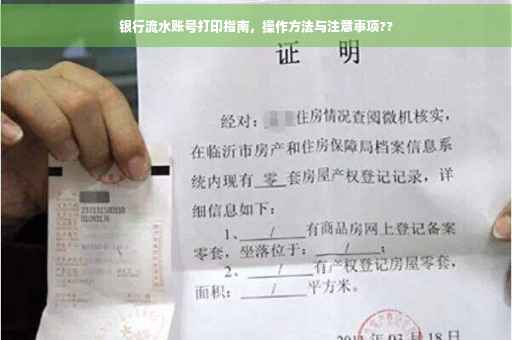 银行流水账号打印指南，操作方法与注意事项??
证 明
经对：住房情况查阅微机核实，
在临沂市房产和住房保障局档案信息系
统内现有 零 套房屋产权登记记录，详
细信息如下：
1、 / 有商品房网上登记备案
零套，坐落位于： / ；
2、 / 有产权登记房屋零套，
面积： / 平方米。
03月18日